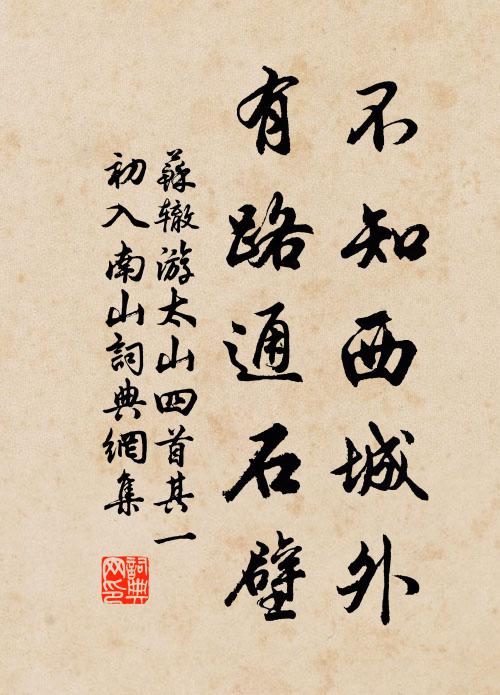 不知西城外
有路通石壁
蘇辙游太山四首其一
初入南山詞典網集
詞典網印